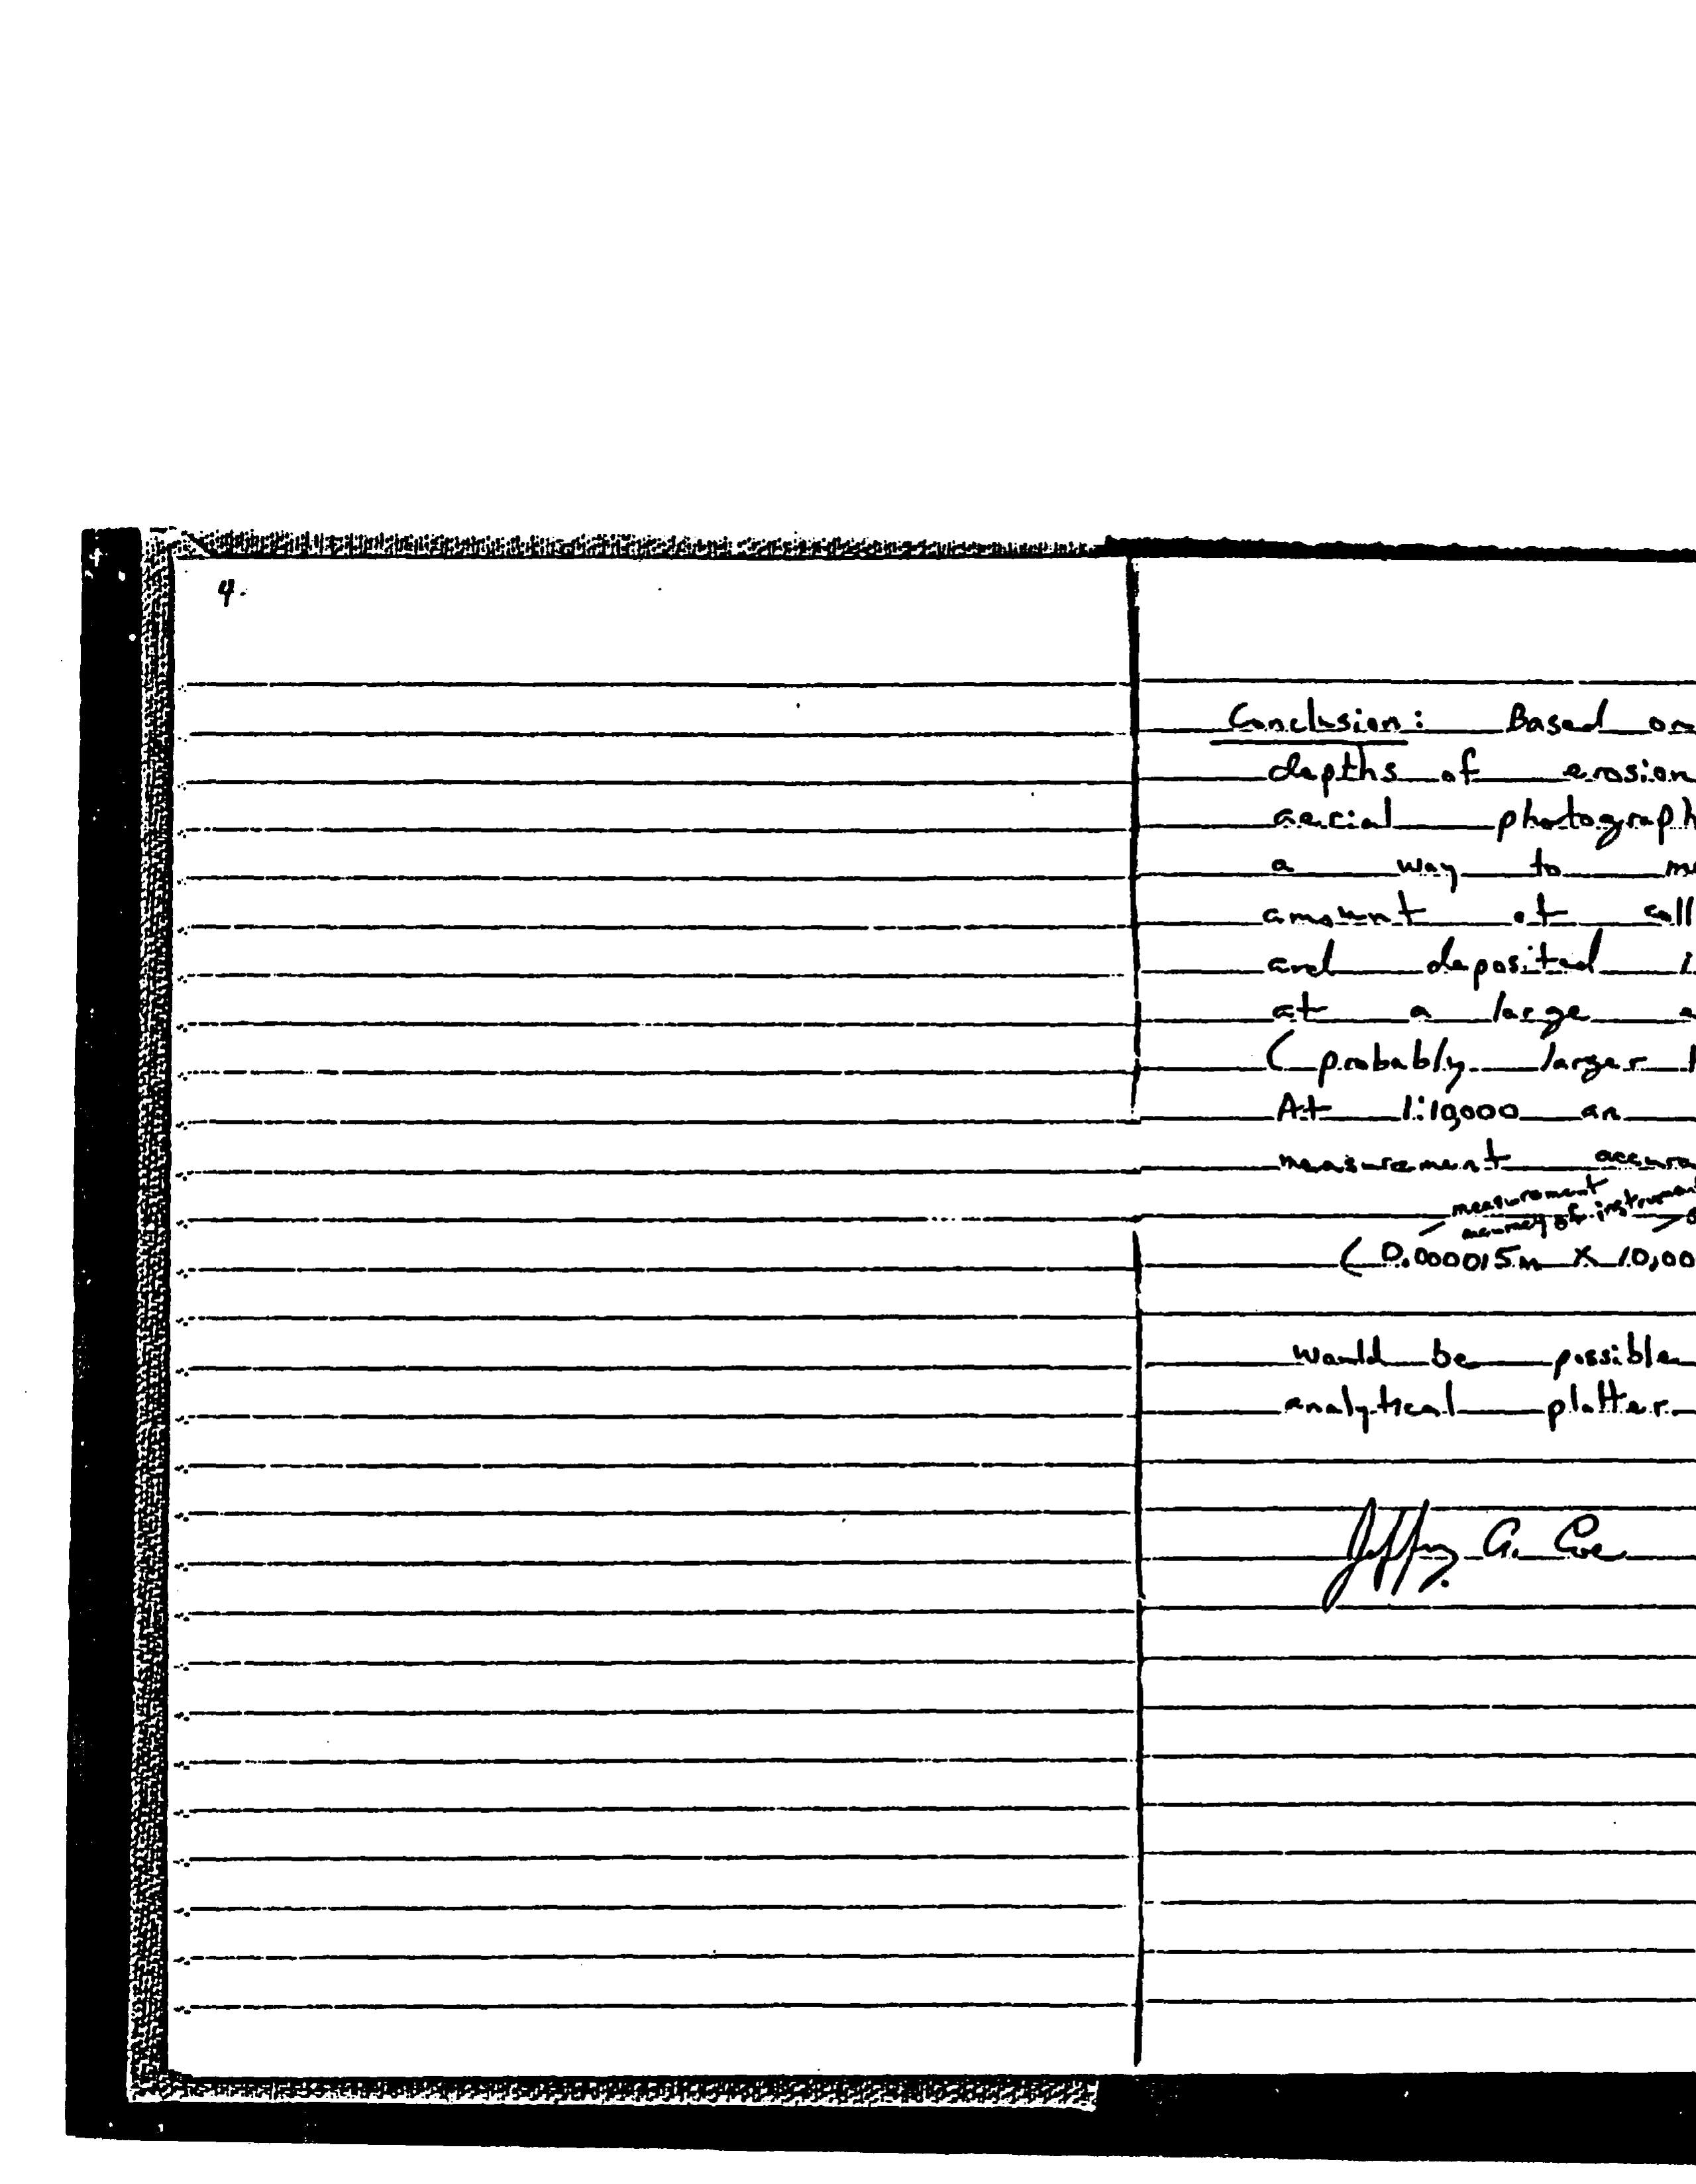 4.
Conclusion: Based on
depths of erosion
aerial photograph
a way to
amount of coll
and deposited i
at a large
(probably larger
At 1:10,000 an
measurement accura
measurement
accuracy of instrument
(0.000015m X 10,00
would be possible
analytical plotter
Jeffrey A. Coe